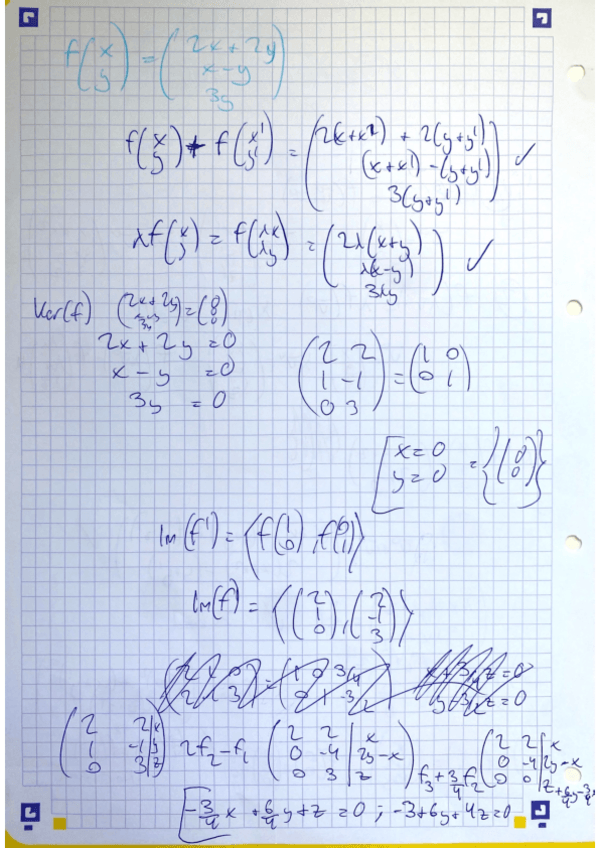 f(x y) = (2x+2y x-y 3y)
f(x y) + f(x' y') = (2(x+x') + 2(y+y') (x+x') - (y+y') 3(y+y')) ✓
λf(x y) = f(λx λy) = (2λ(x+y) λ(x-y) 3λy) ✓
Ker(f) (2x+2y x-y 3y) = (0 0 0)
2x + 2y = 0
x - y = 0
3y = 0
(2 2 1 -1 0 3) = (1 0 0 1)
[x = 0 y = 0 = {(0 0)}
Im(f) = ⟨f(1 0), f(0 1)⟩
Im(f) = ⟨(2 1 0), (2 -1 3)⟩
(2 2|x 1 -1|y 0 3|z) 2f₂-f₁ (2 2|x 0 -4|2y-x 0 3|z) f₃+3/4f₂ (2 2|x 0 -4|2y-x 0 0|z+6/4y-3/4
[-3/4x + 6/4y + z = 0 ; -3+6y+4z=0